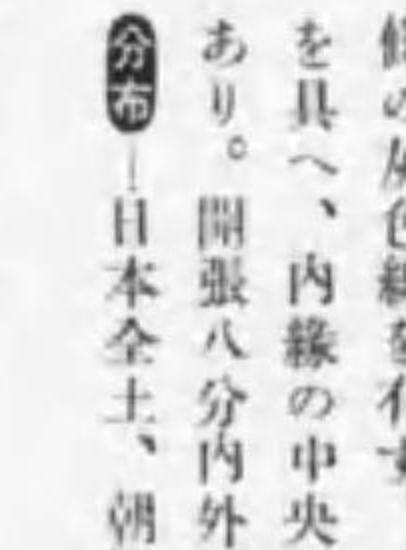 條の灰色線を有す
を具へ、內緣の中央
あり。開張八分內外
分布―日本全土、朝